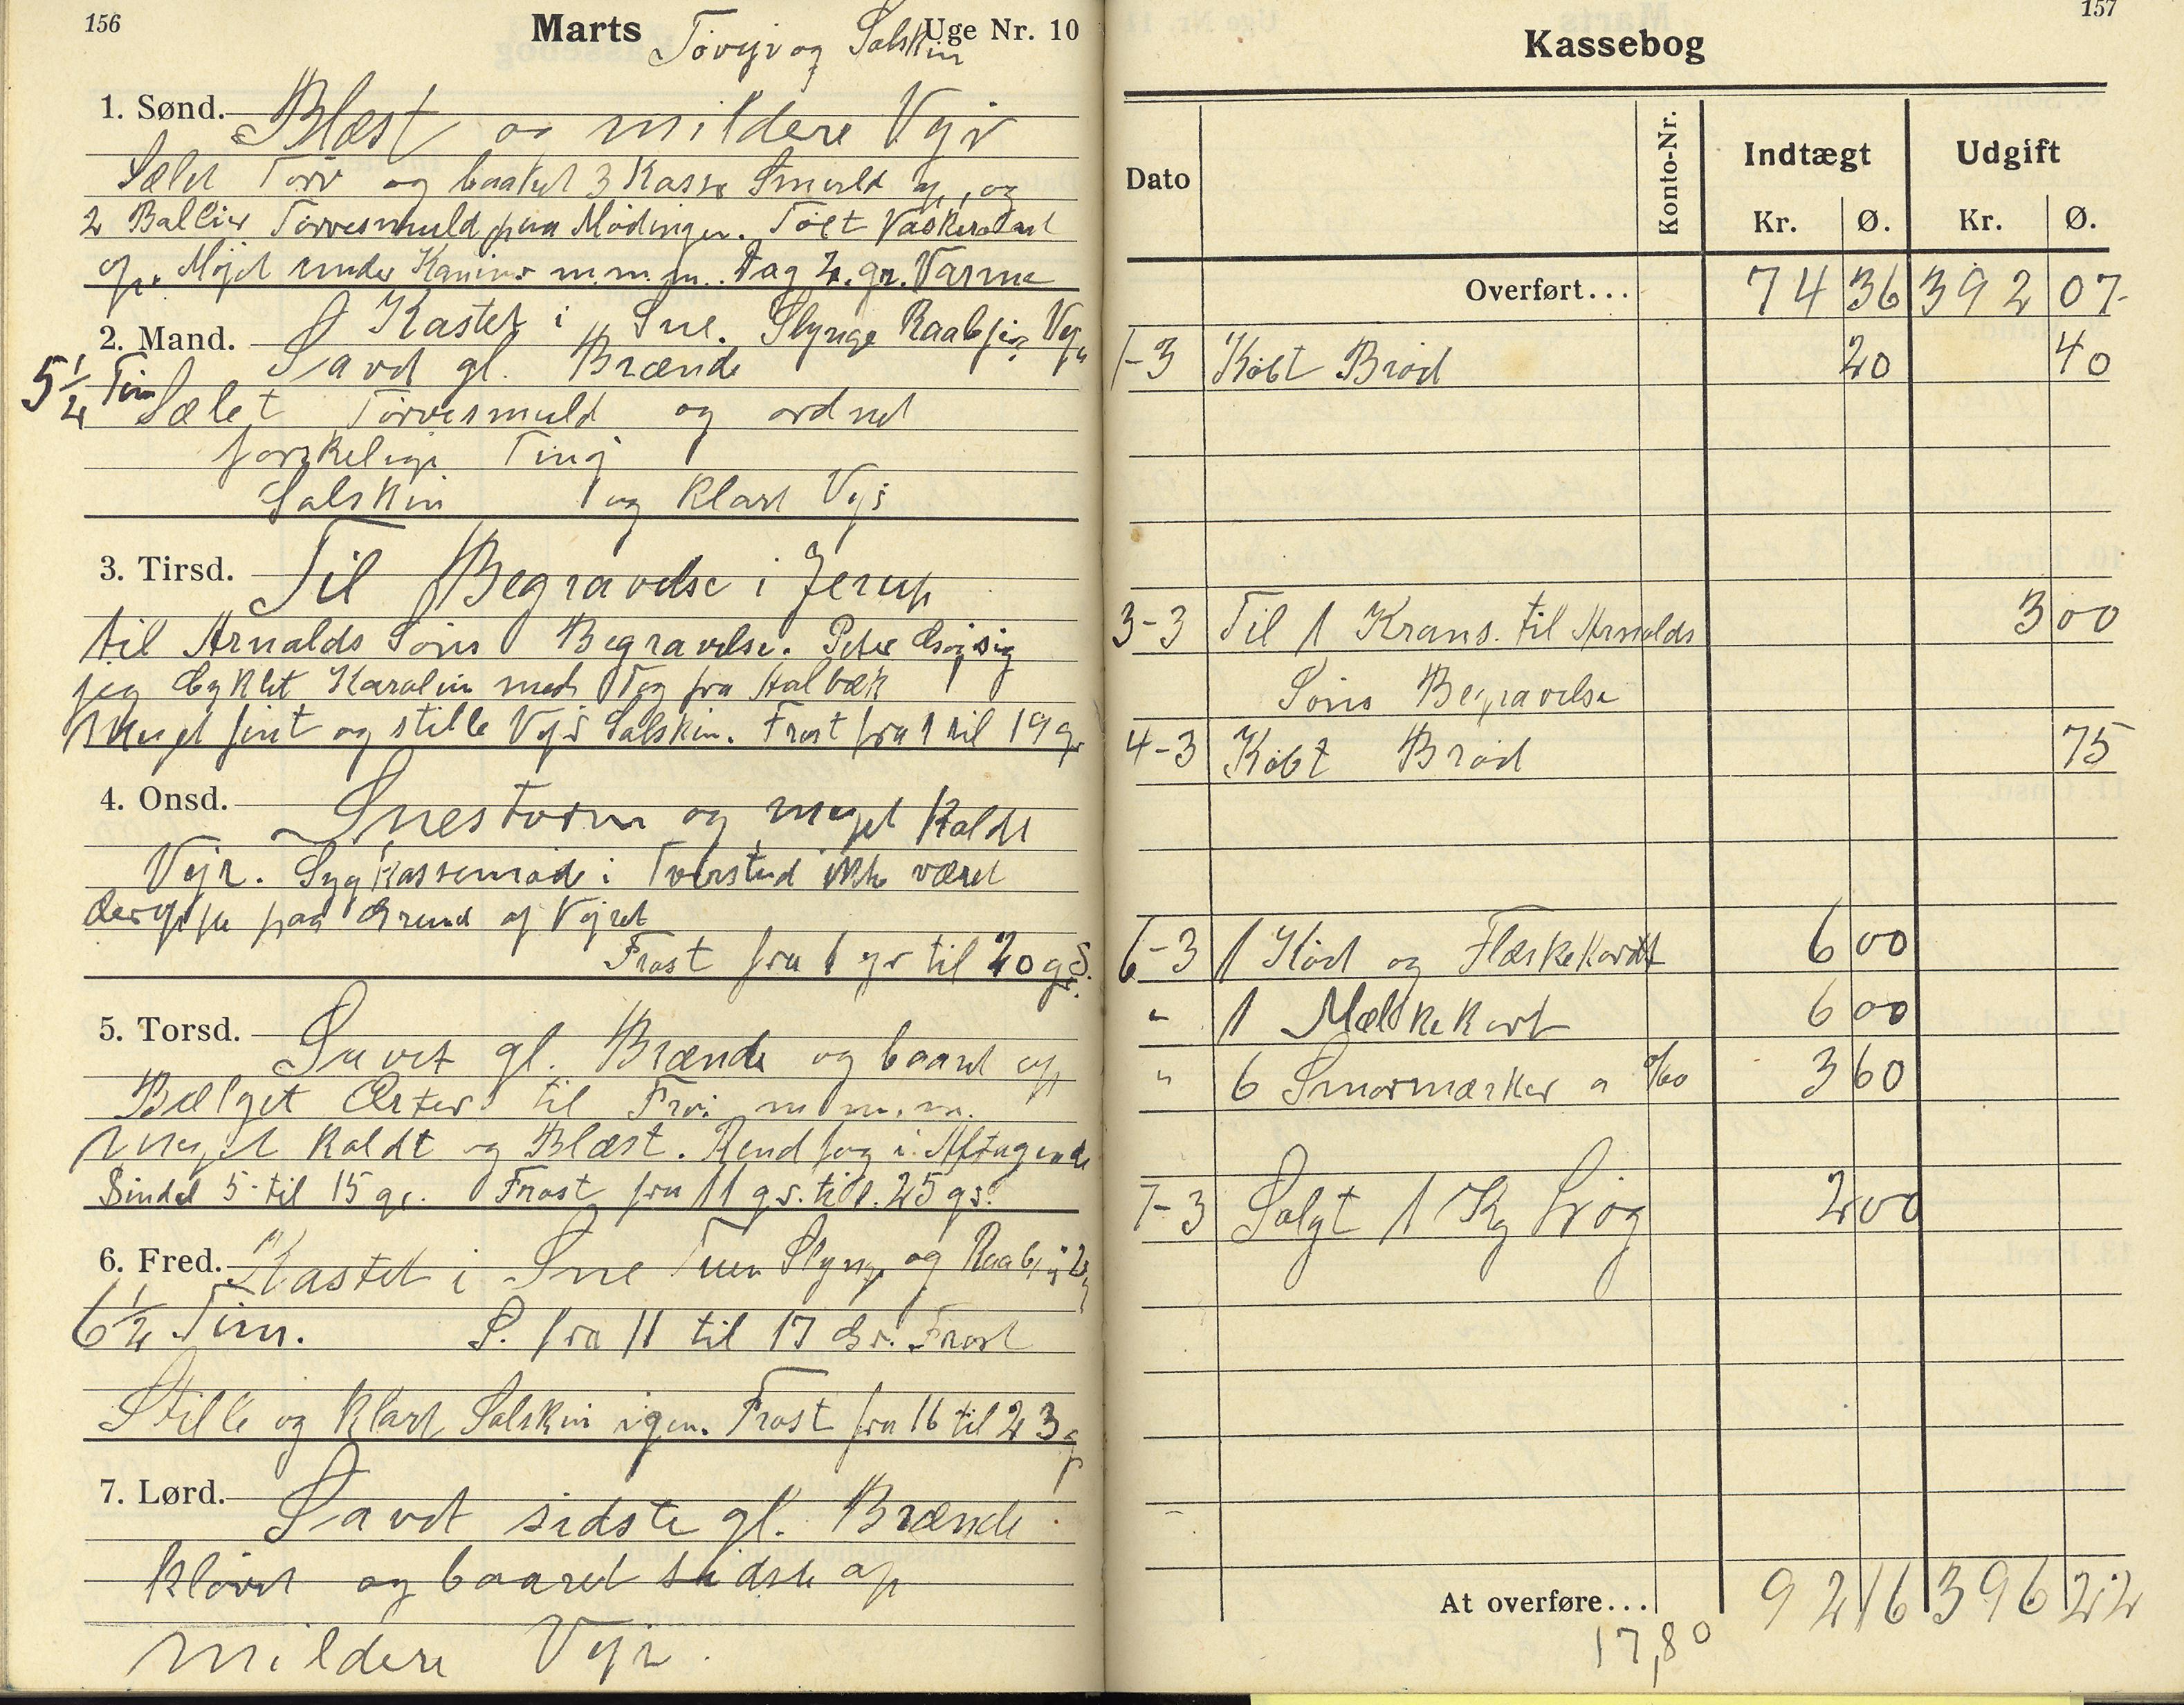 156
Marts
Uge Nr. 10
Tøvejr og Solskin
1. Sønd. Blæst og mildere Vejr
Sælet Tørv og baaret 3 Kasse Smuld op, og
2 Baller Tørvesmuld paa Mødingen. Tøet Vaskevand
op. Møget under Kaniner m.m.m. Dag 2. gr. Varme
2. Mand. Kastet i Sne. Slynge Raabjerg Vej
5½ Tim Savd gl. Brænde
Sælet Tørvesmuld og ordnet
forskelige Ting
Solskin og klart Vejr
3. Tirsd. Til Begravelse i Jerup
til Arnolds Søns Begravelse. Peter og
jeg Cyklet Karoline med Tog fra Aalbæk
Meget fint og stille Vejr Solskin. Frost fra 1 til 19 gr
4. Onsd. Snestorm og meget koldt
Vejr. Sygkassemøde i Tversted ikke været
deroppe paa Grund af Vejret
Frost fra 1 gr til 20 gr.
5. Torsd. Savet gl. Brænde og baaret op
Bælget Ærter til Frø m.m.m.
Meget koldt og Blæst. Rendfog i Aftagende
Vindel 5 til 15 gr. Frost fra 11 gr. til 25 gr.
6. Fred. Kastet i Sne Tuen Slynge og Raabjerg
6½ Tim. S. fra 11 til 17 Gr. Frost
Stille og klart Solskin igen. Frost fra 16 til 23 gr
7. Lørd. Savet sidste gl. Brænde
kløvet og baaret sidste op
mildere Vejr.
157
Kassebog
Dato
Konto-Nr.
Indtægt
Udgift
Kr. Ø. Kr. Ø.
Overført... 74 36 392 07
1-3 Købt Brød 20 40
3-3 Til 1 Krans til Arnolds 3 00
Søns Begravelse
4-3 Købt Brød 75
6-3 1 Kød og Flæskekort 6 00
" 1 Mælkekort 6 00
" 6 Smørmærker a 0/60 3 60
7-3 Solgt 1 Kg Løg 2 00
At overføre... 92 16 396 22
17,80